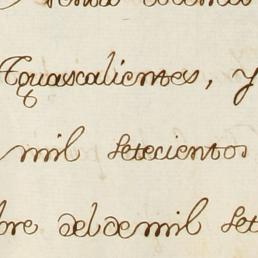 Aguascalientes, y
mil setecientos
bre del de mil set